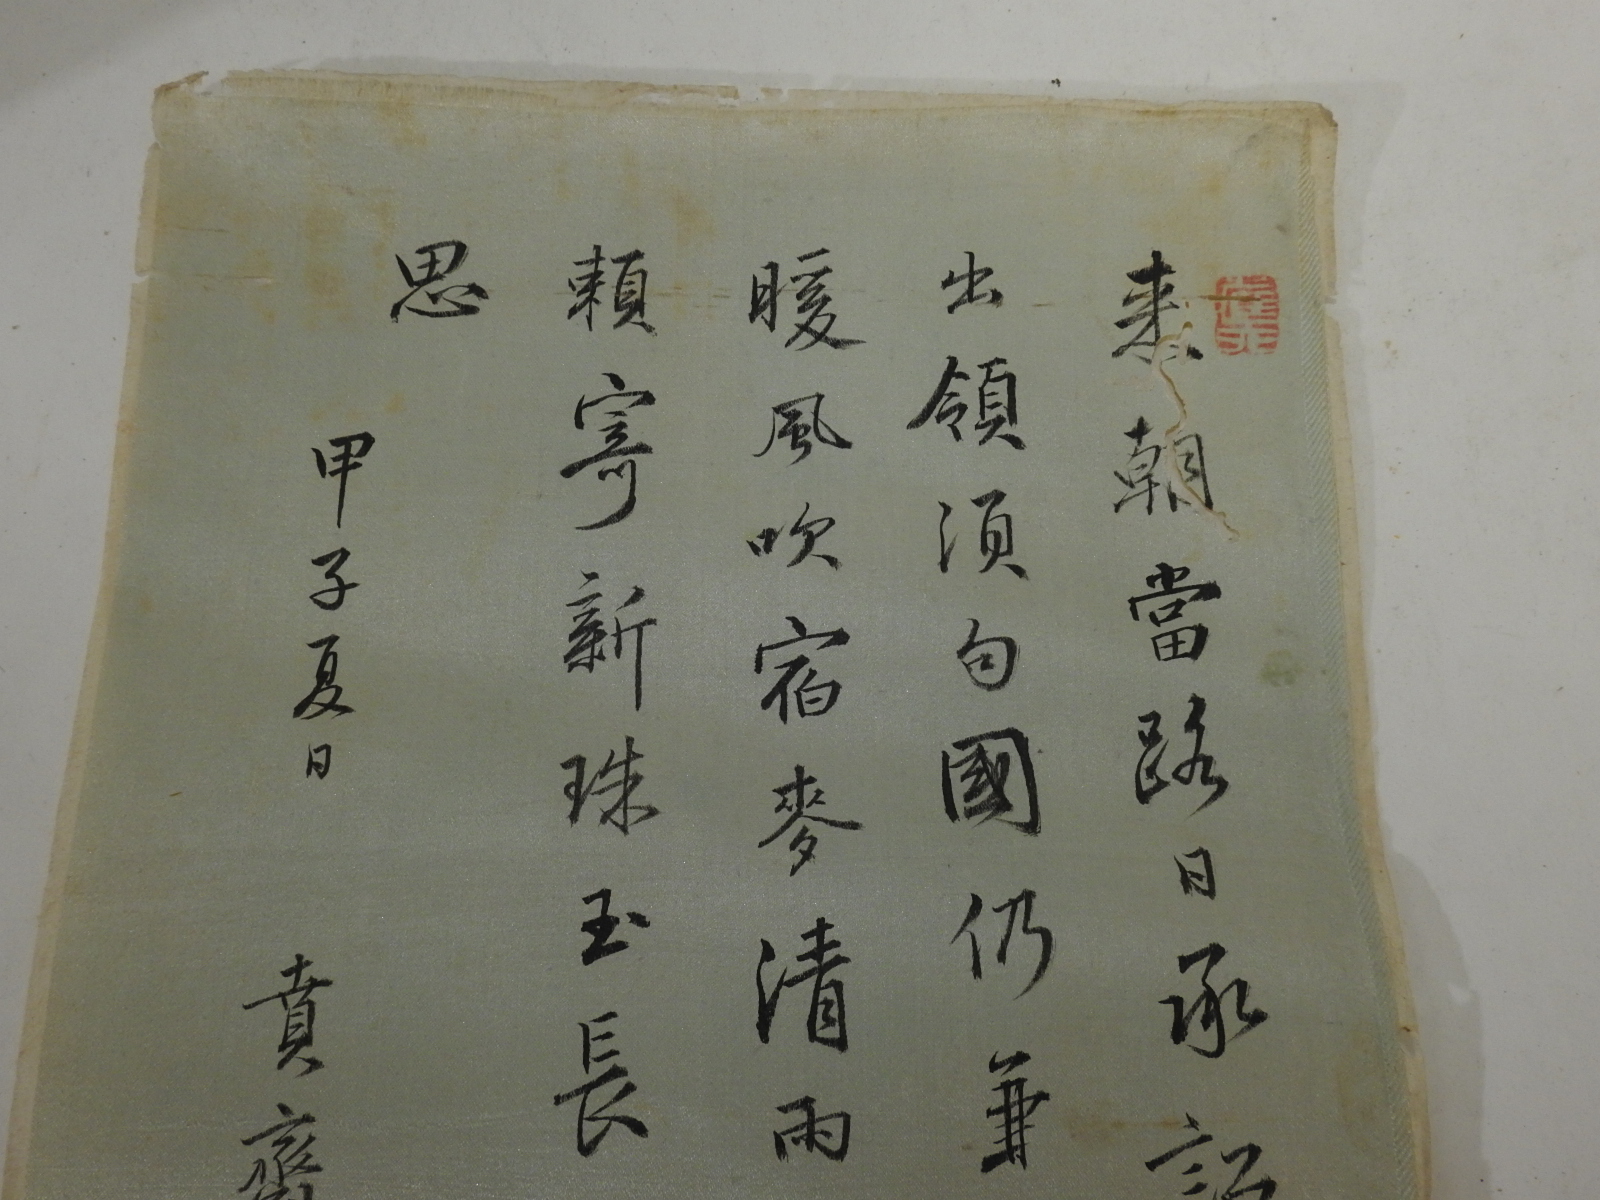 來朝當路日承詔
出領須句國仍兼
暖風吹宿麥清雨
頼寄新珠玉長
思
甲子夏日
賁齋